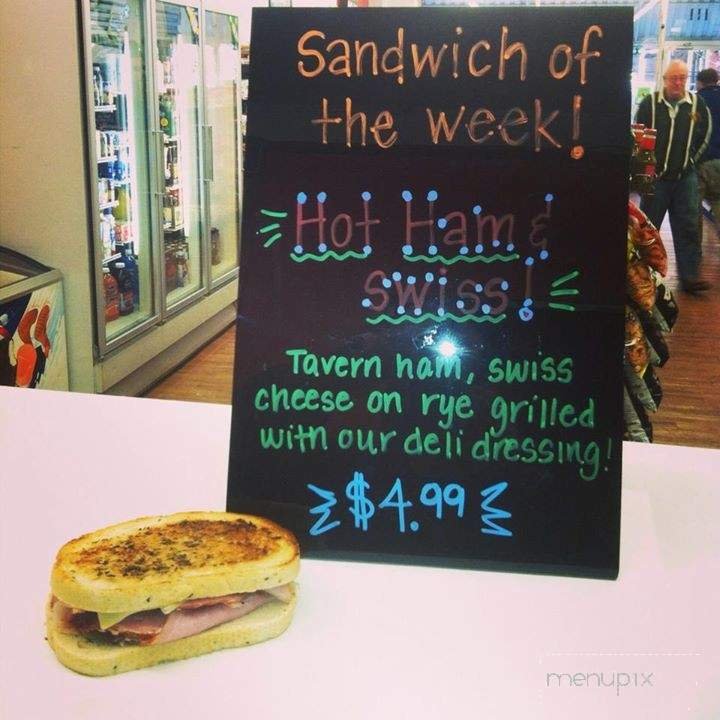 Sandwich of
the week!
Hot Ham &
Swiss!
Tavern ham, swiss
cheese on rye grilled
with our deli dressing!
$4.99
menupix